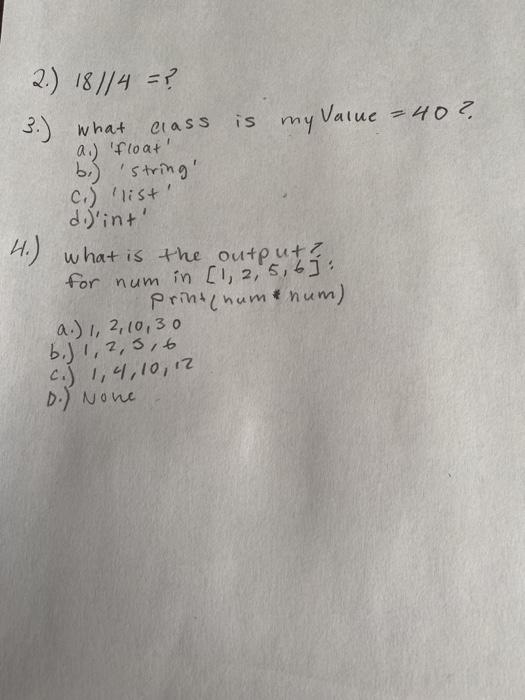 2.) 18//4 = ?
3.) what class is myValue = 40 ?
a.) 'float'
b.) 'string'
c.) 'list'
d.) 'int'
4.) what is the output?
for num in [1, 2, 5, 6]:
print(num * num)
a.) 1, 2, 10, 30
b.) 1, 2, 5, 6
c.) 1, 4, 10, 12
D.) None